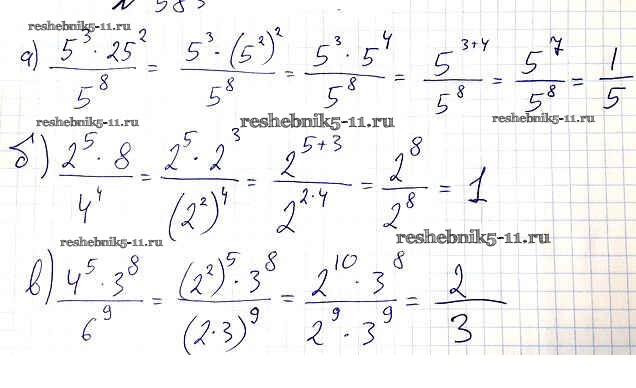 № 583
reshebnik5-11.ru
а) (5³ · 25²)/5⁸ = (5³ · (5²)²)/5⁸ = (5³ · 5⁴)/5⁸ = 5³⁺⁴/5⁸ = 5⁷/5⁸ = 1/5
reshebnik5-11.ru reshebnik5-11.ru reshebnik5-11.ru
б) (2⁵ · 8)/4⁴ = (2⁵ · 2³)/(2²)⁴ = 2⁵⁺³/2²·⁴ = 2⁸/2⁸ = 1
reshebnik5-11.ru reshebnik5-11.ru
в) (4⁵ · 3⁸)/6⁹ = ((2²)⁵ · 3⁸)/(2·3)⁹ = (2¹⁰ · 3⁸)/(2⁹ · 3⁹) = 2/3